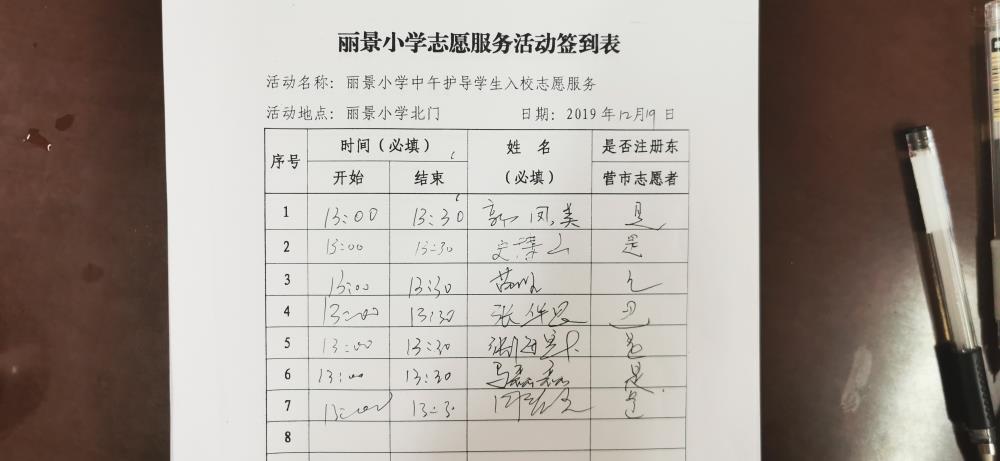 丽景小学志愿服务活动签到表
活动名称：丽景小学中午护导学生入校志愿服务
活动地点：丽景小学北门 日期：2019年12月19日
序号 时间（必填） 姓名（必填） 是否注册东营市志愿者
开始 结束
1 13:00 13:30 郭凤美 是
2 13:00 13:30 是
3 13:00 13:30
4 13:00 13:30 张 是
5 13:00 13:30 是
6 13:00 13:30 马磊磊 是
7 13:00 13:30 是
8